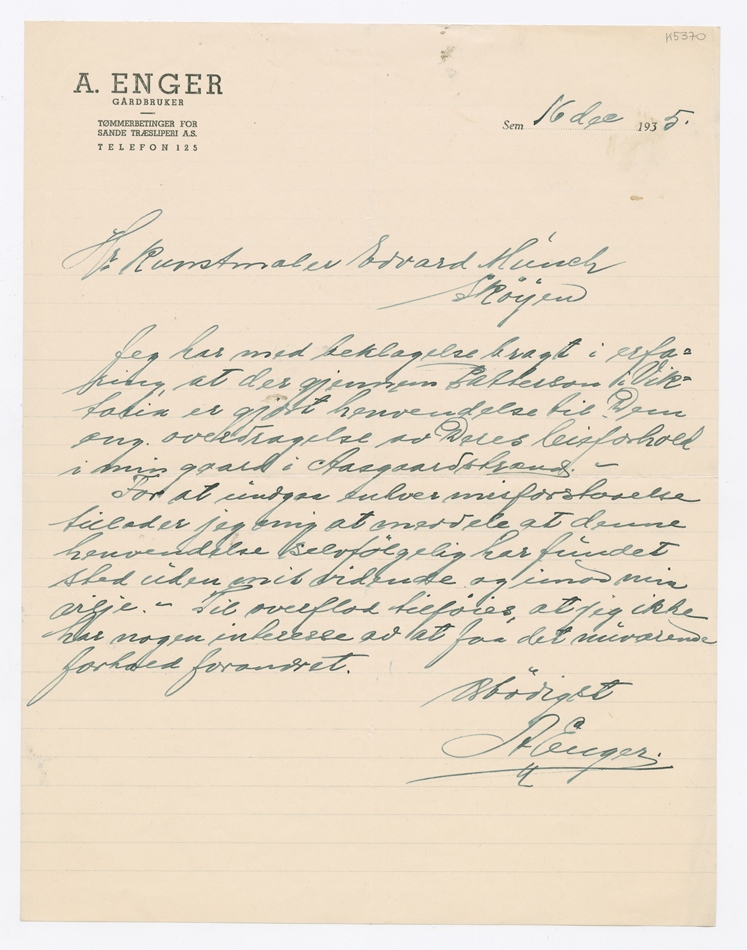 K5370
A. ENGER
GÅRDBRUKER
TØMMERBETINGER FOR
SANDE TRÆSLIPERI A.S.
TELEFON 125
Sem 16 dec 1935.
Hr. Kunstmaler Edvard Münch
Sköyen
Jeg har med beklagelse bragt i erfa=
ring at der gjennem Patterson i Vik=
toria er gjort henvendelse til Dem
ang. overdragelse av Deres leieforhold
i min gaard i Aasgaardstrand. –
For at undgaa enhver misforstaaelse
tillader jeg mig at meddele at denne
henvendelse selvfölgelig har fundet
sted uden mit vidende og imod min
vilje. – Til overflod tilföies, at jeg ikke
har nogen interesse av at faa det nuværende
forhold forandret.
Ærbödigst
A Enger.